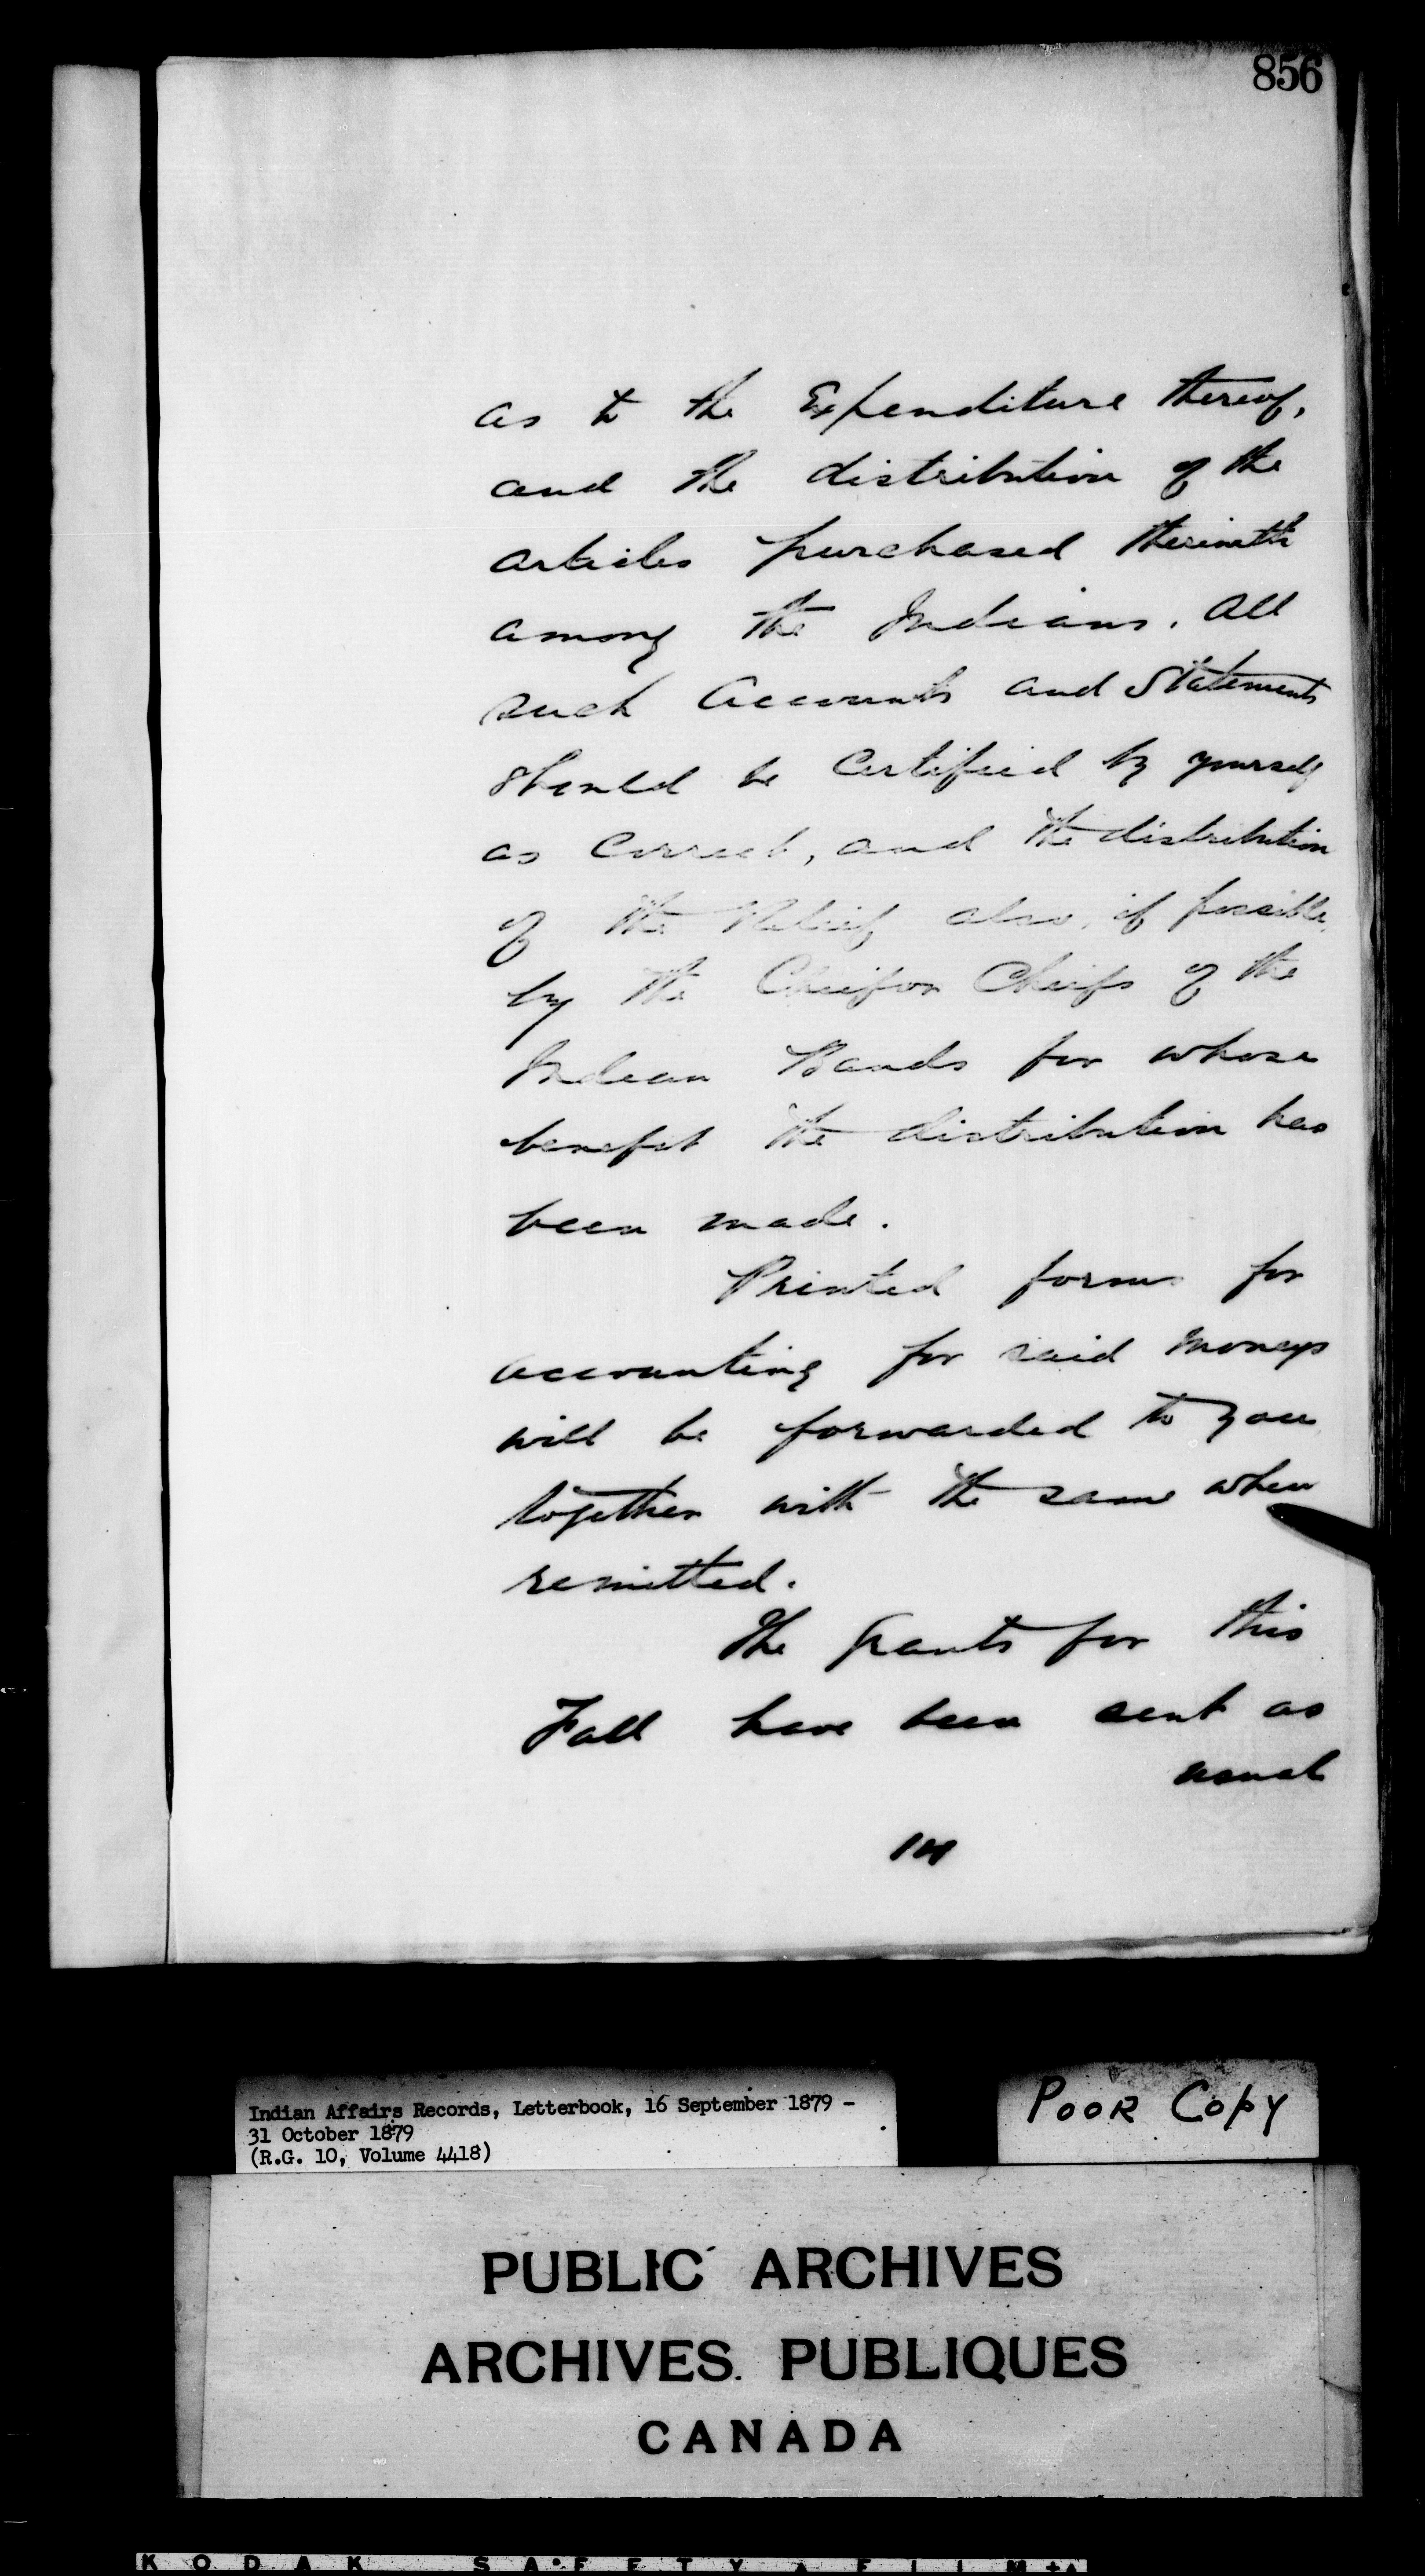 856
as to the Expenditure thereof,
and the distribution of the
articles purchased therewith
among the Indians. All
such Accounts and Statements
should be Certified by yourself
as Correct, and the distribution
of the Relief also, if possible,
by the Chief or Chiefs of the
Indian Bands for whose
benefit the distribution has
been made.
Printed forms for
accounting for said moneys
will be forwarded to you
together with the same when
remitted.
The Grants for this
Fall have been sent as
usual
Indian Affairs Records, Letterbook, 16 September 1879 -
31 October 1879
(R.G. 10, Volume 4418)
POOR COPY
PUBLIC ARCHIVES
ARCHIVES PUBLIQUES
CANADA
KODAK SAFETY FILM